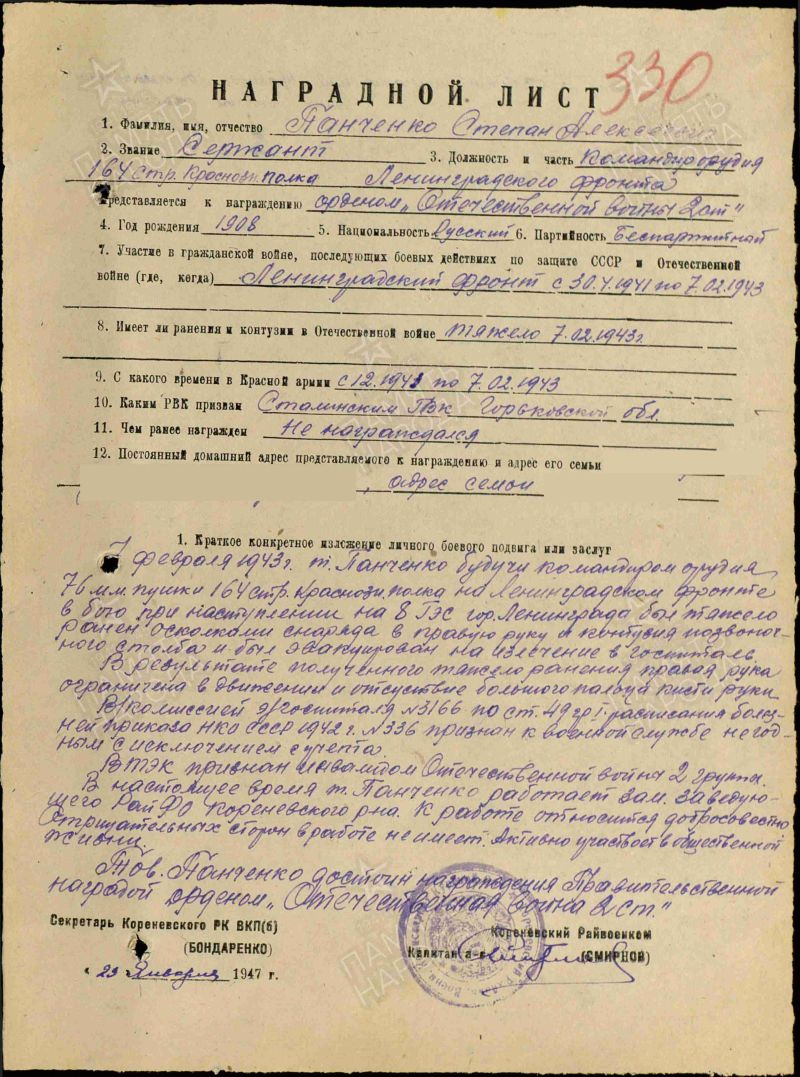 330
НАГРАДНОЙ ЛИСТ
1. Фамилия, имя, отчество Панченко Степан Алексеевич
2. Звание Сержант 3. Должность и часть Командир орудия
164 стр. Краснозн. полка Ленинградского фронта
Представляется к награждению орденом „Отечественной войны 2 ст"
4. Год рождения 1908 5. Национальность Русский 6. Партийность Беспартийный
7. Участие в гражданской войне, последующих боевых действиях по защите СССР и Отечественной
войне (где, когда) Ленинградский фронт с по 7.02.1943
8. Имеет ли ранения и контузии в Отечественной войне тяжело 7.02.1943г.
9. С какого времени в Красной армии по 7.02.1943
10. Каким РВК призван Сталинским РВК Горьковской обл.
11. Чем ранее награжден Не награждался
12. Постоянный домашний адрес представляемого к награждению и адрес его семьи
, адрес семьи
1. Краткое конкретное изложение личного боевого подвига или заслуг
7 февраля 1943 г. т. Панченко будучи командиром орудия
76 м.м. пушки 164 стр. Краснозн. полка на Ленинградском фронте
в бою при наступлении на 8 ГЭС гор. Ленинграда был тяжело
ранен осколками снаряда в правую руку и контузия позвоноч-
ного столба и был эвакуирован на излечение в госпиталь.
В результате полученного тяжело ранения правая рука
ограничена в движении и отсутствие большого пальца кисти руки.
В/комиссией э/госпиталя №3166 по ст. 49 гр I расписания болез-
ней приказа НКО СССР 1942 г. №336 признан к военной службе негод-
ным с исключением с учета.
ВТЭК признан инвалидом Отечественной войны 2 группы.
В настоящее время т. Панченко работает зам. заведую-
щего РайФО Кореневского р-на. К работе относится добросовестно
Отрицательных сторон в работе не имеет. Активно участвует в общественной
жизни.
Тов. Панченко достоин награждения Правительственной
наградой орденом „Отечественная война 2 ст."
Секретарь Кореневского РК ВКП(б)
(БОНДАРЕНКО)
Кореневский Райвоенком
Капитан а-с (СМИРНОВ)
„ 23 Января 1947 г.